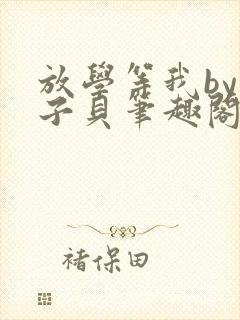 放學等我by
子貝筆趣閣
褚保田